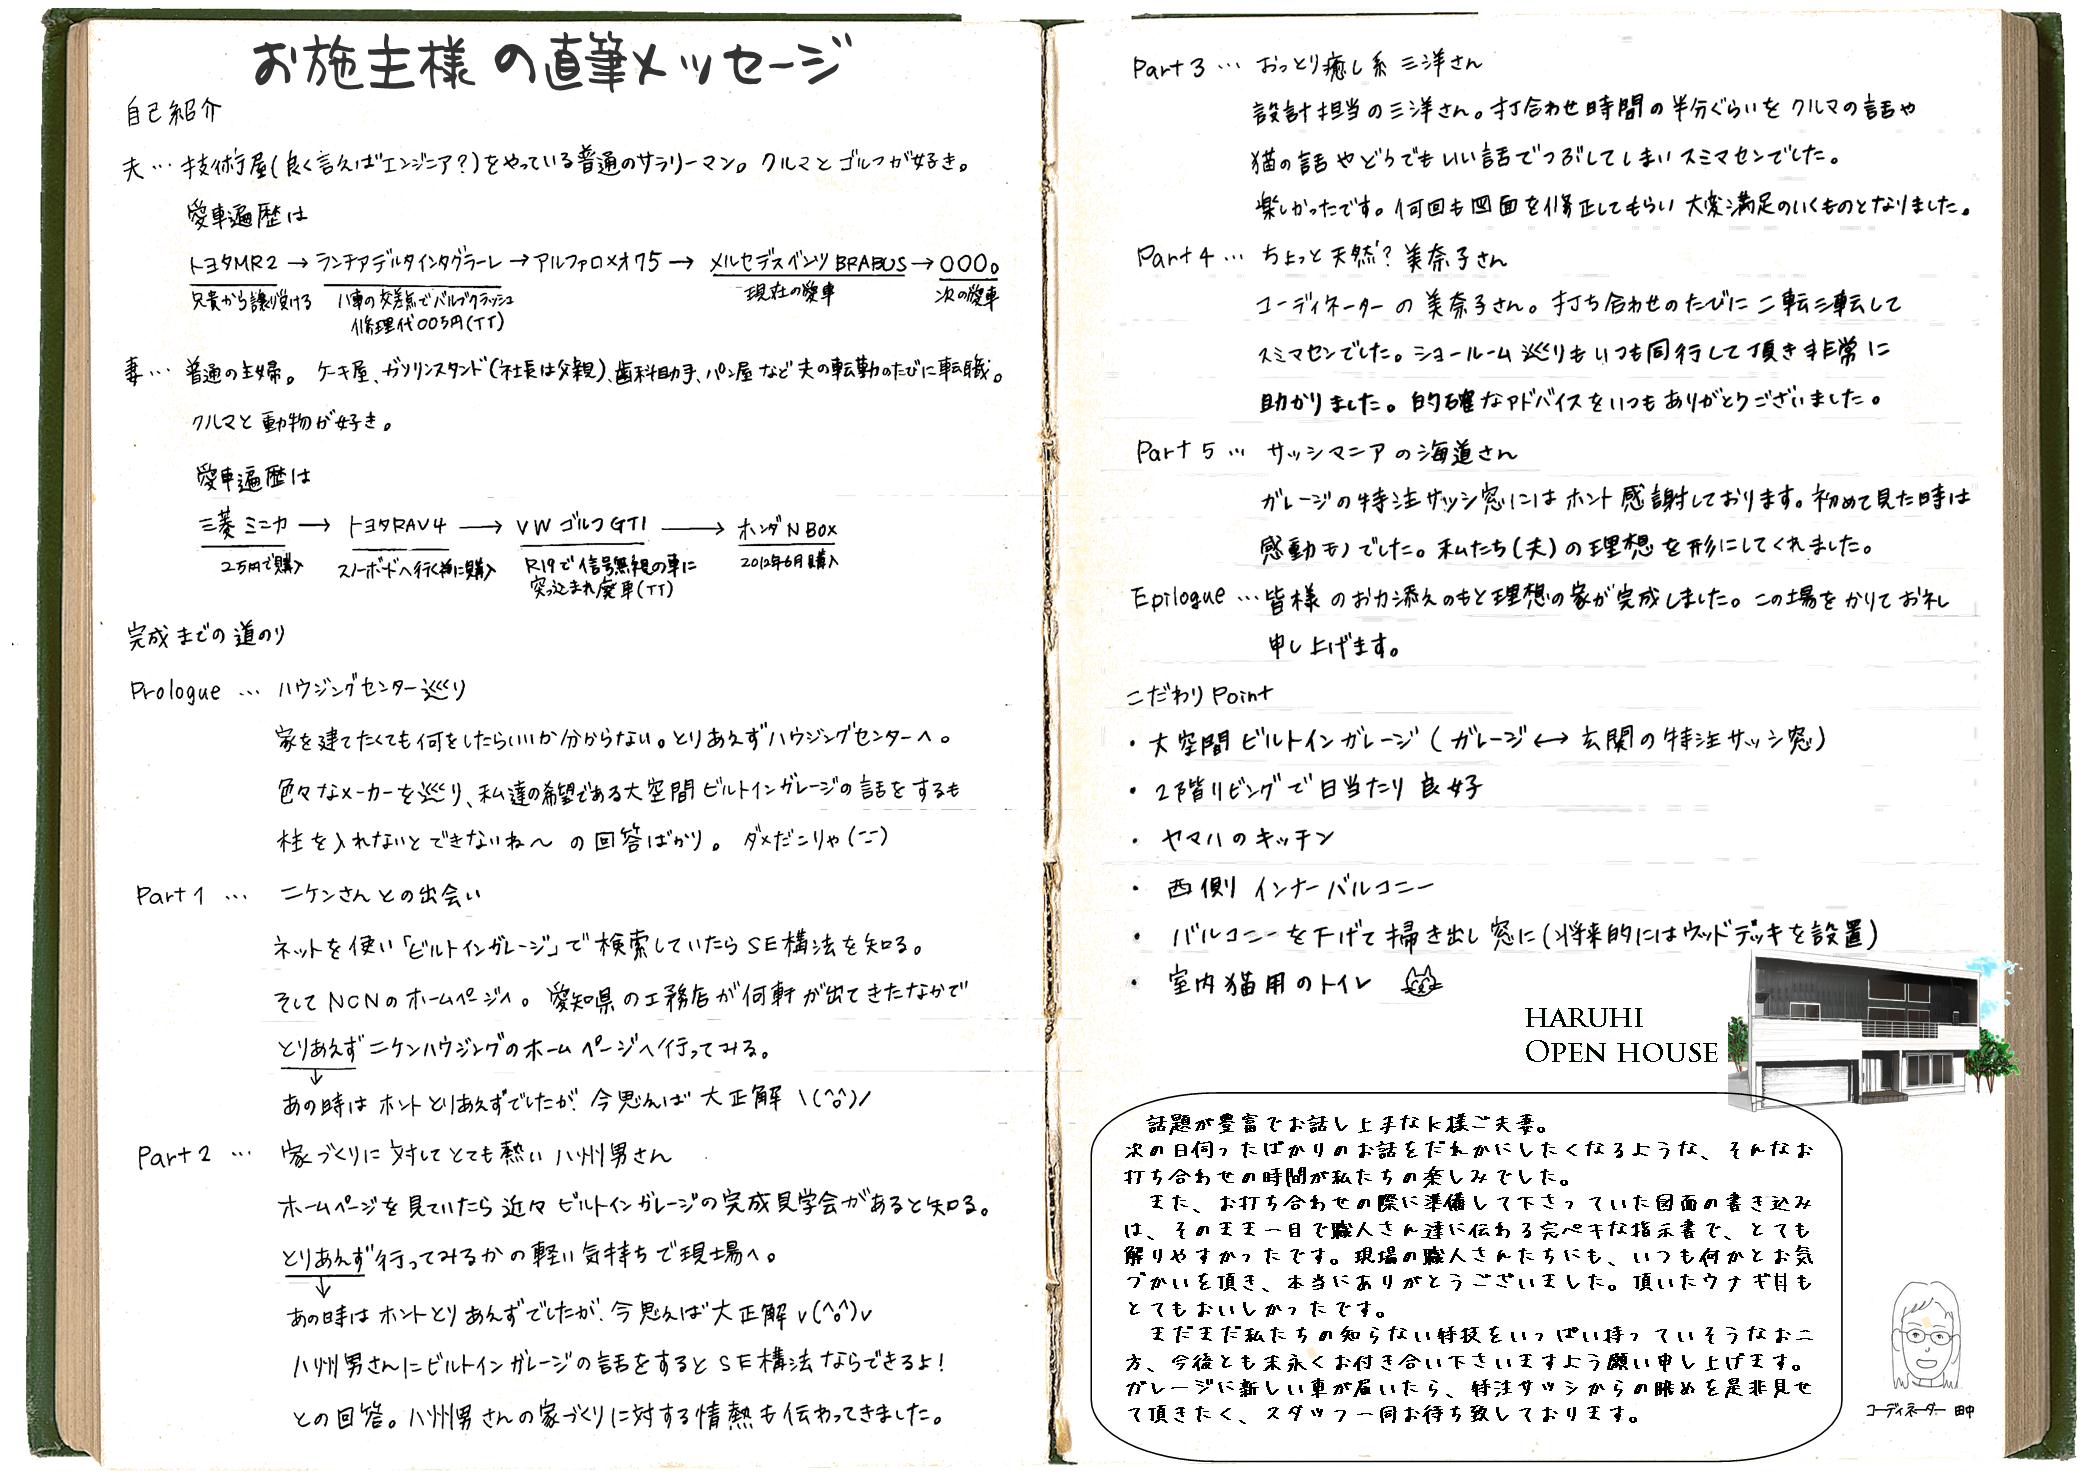 お施主様の直筆メッセージ
自己紹介
夫… 技術屋(良く言えばエンジニア?)をやっている普通のサラリーマン。クルマとゴルフが好き。
愛車遍歴は
トヨタMR2→ランチアデルタインタグラーレ→アルファロメオ75→メルセデスベンツBRABUS→〇〇〇。
兄貴から譲り受ける
八事の交差点でバルブクラッシュ
修理代〇〇万円(TT)
現在の愛車
次の愛車
妻… 普通の主婦。ケーキ屋、ガソリンスタンド(社長は父親)、歯科助手、パン屋など夫の転勤のたびに転職。
クルマと動物が好き。
愛車遍歴は
三菱ミニカ→トヨタRAV4→VWゴルフGTI→ホンダN BOX
2万円で購入
スノーボードへ行く為に購入
R19で信号無視の車に
突っ込まれ廃車(TT)
2012年6月購入
完成までの道のり
Prologue… ハウジングセンター巡り
家を建てたくても何をしたらいいか分からない。とりあえずハウジングセンターへ。
色々なメーカーを巡り、私達の希望である大空間ビルトインガレージの話をするも
柱を入れないとできないね〜の回答ばかり。ダメだこりゃ(--)
Part1… ニケンさんとの出会い
ネットを使い「ビルトインガレージ」で検索していたらSE構法を知る。
そしてNCNのホームページへ。愛知県の工務店が何軒が出てきたなかで
とりあえずニケンハウジングのホームページへ行ってみる。
↓
あの時はホントとりあえずでしたが、今思えば大正解\(^o^)/
Part2… 家づくりに対してとても熱い八州男さん
ホームページを見ていたら近々ビルトインガレージの完成見学会があると知る。
とりあえず行ってみるかの軽い気持ちで現場へ。
↓
あの時はホントとりあえずでしたが、今思えば大正解v(^o^)v
八州男さんにビルトインガレージの話をするとSE構法ならできるよ!
との回答。八州男さんの家づくりに対する情熱も伝わってきました。
Part3… おっとり癒し系三洋さん
設計担当の三洋さん。打合わせ時間の半分ぐらいをクルマの話や
猫の話やどうでもいい話でつぶしてしまいスミマセンでした。
楽しかったです。何回も図面を修正してもらい大変満足のいくものとなりました。
Part4… ちょっと天然?美奈子さん
コーディネーターの美奈子さん。打ち合わせのたびに二転三転して
スミマセンでした。ショールーム巡りもいつも同行して頂き非常に
助かりました。的確なアドバイスをいつもありがとうございました。
Part5… サッシマニアの海道さん
ガレージの特注サッシ窓にはホント感謝しております。初めて見た時は
感動モノでした。私たち(夫)の理想を形にしてくれました。
Epilogue… 皆様のお力添えのもと理想の家が完成しました。この場をかりてお礼
申し上げます。
こだわりPoint
・大空間ビルトインガレージ(ガレージ↔玄関の特注サッシ窓)
・2階リビングで日当たり良好
・ヤマハのキッチン
・西側インナーバルコニー
・バルコニーを下げて掃き出し窓に(将来的にはウッドデッキを設置)
・室内猫用のトイレ
HARUHI
OPEN HOUSE
話題が豊富でお話し上手なK様ご夫妻。
次の日伺ったばかりのお話をだれかにしたくなるような、そんなお
打ち合わせの時間が私たちの楽しみでした。
また、お打ち合わせの際に準備して下さっていた図面の書き込み
は、そのまま一目で職人さん達に伝わる完ペキな指示書で、とても
解りやすかったです。現場の職人さんたちにも、いつも何かとお気
づかいを頂き、本当にありがとうございました。頂いたウナギ丼も
とてもおいしかったです。
まだまだ私たちの知らない特技をいっぱい持っていそうなお二
方、今後とも末永くお付き合い下さいますよう願い申し上げます。
ガレージに新しい車が届いたら、特注サッシからの眺めを是非見せ
て頂きたく、スタッフ一同お待ち致しております。
コーディネーター 田中